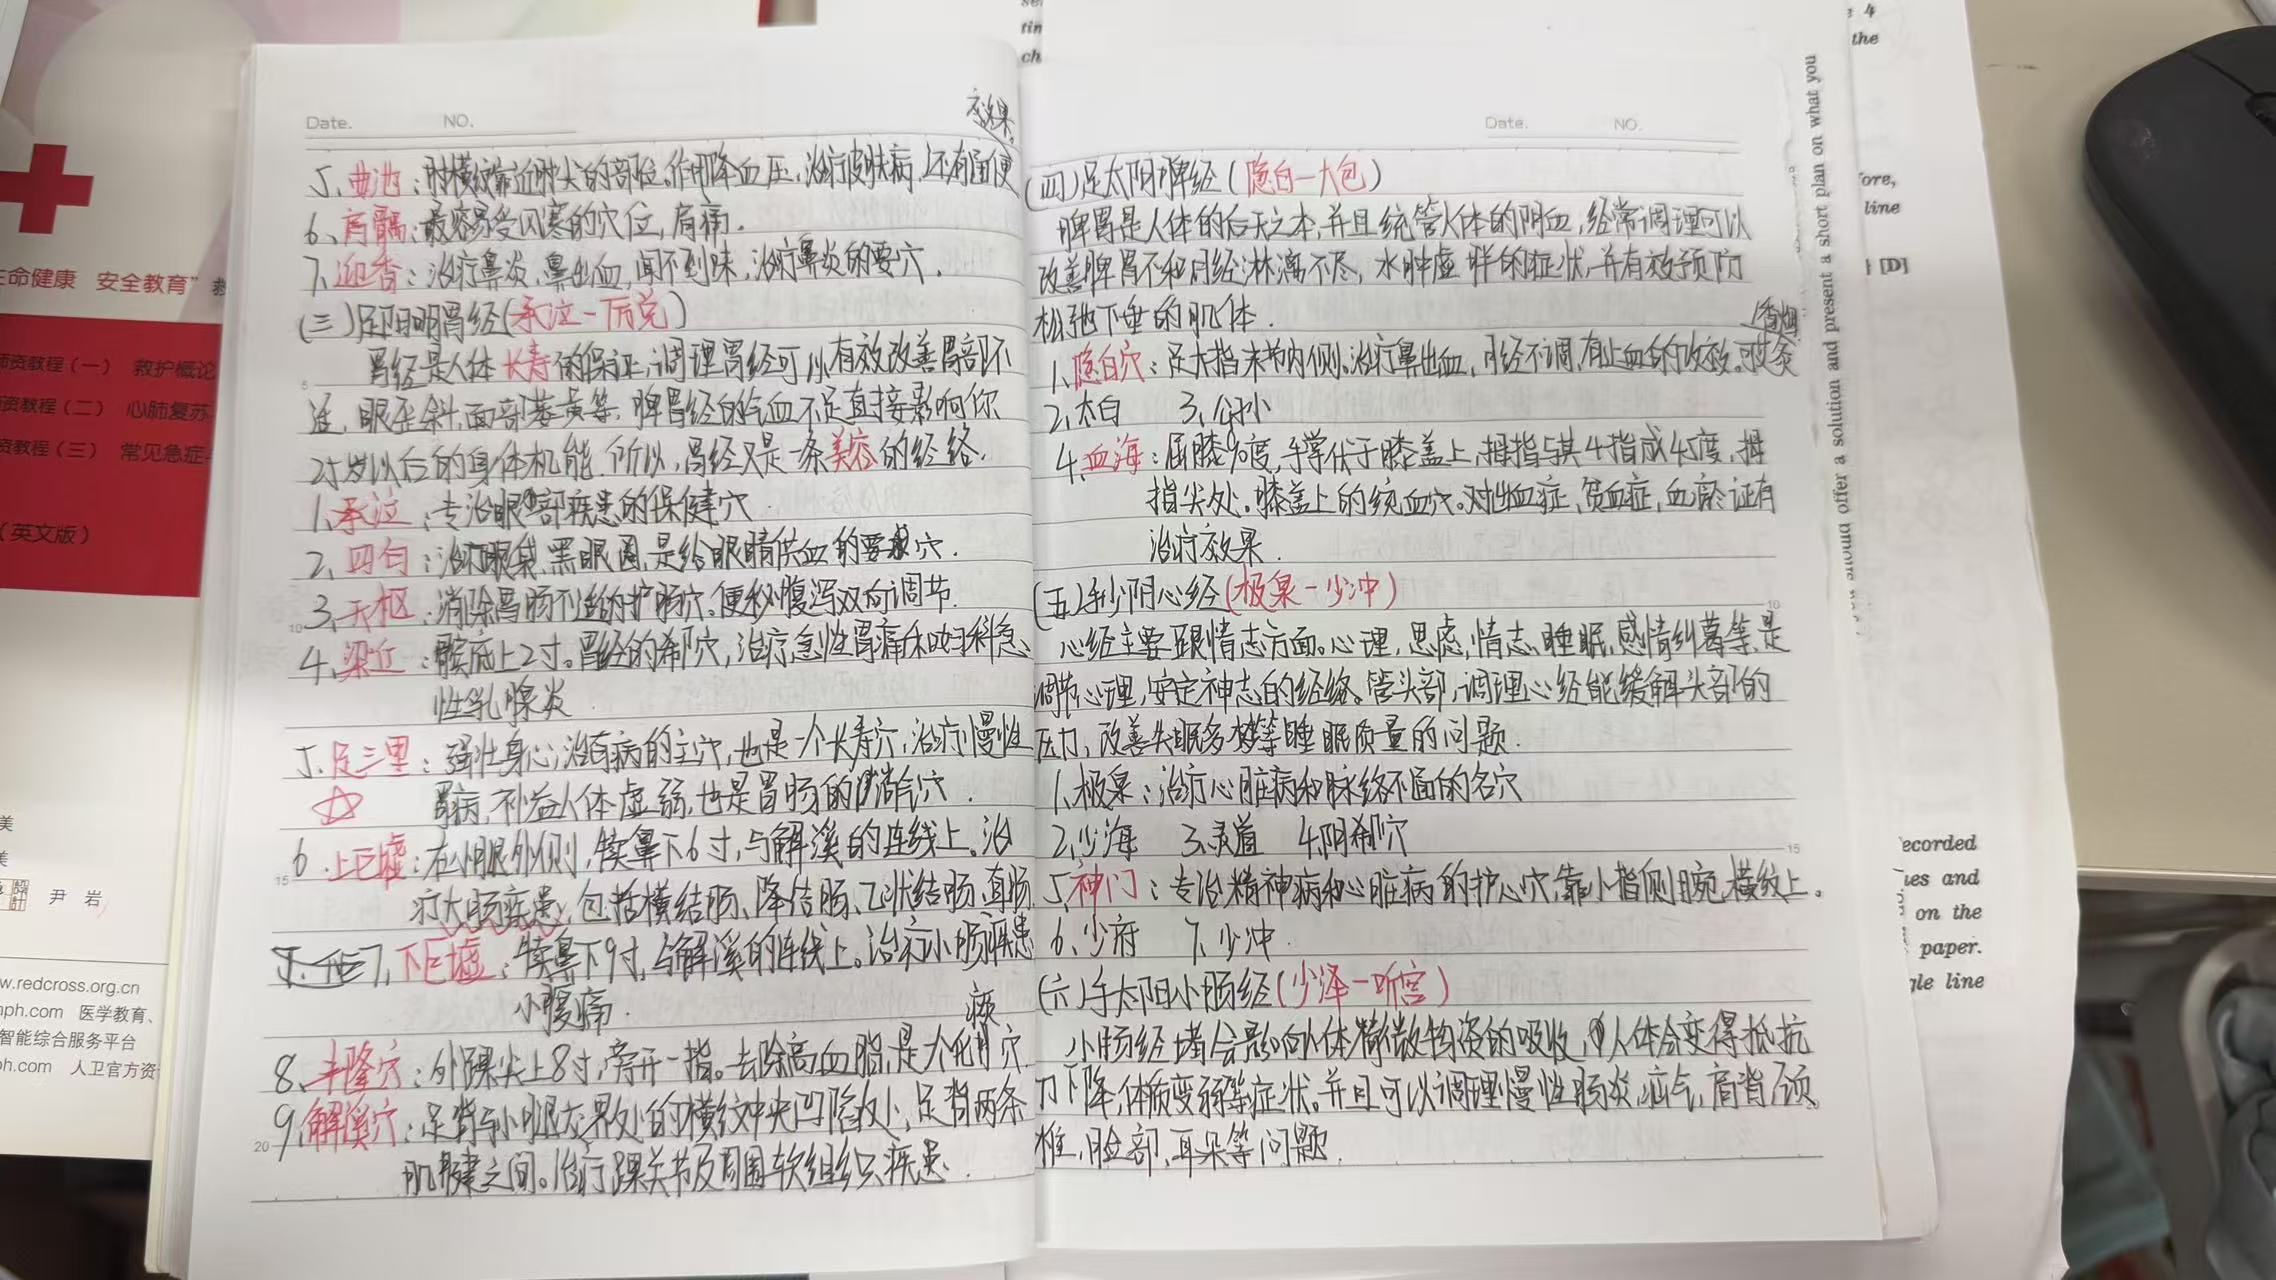 Date. NO.
效果。
5、曲池：肘横纹靠近肘尖的部位。作用降血压，治疗皮肤病，还有通便
6、肩髃：最容易受风寒的穴位，肩痛.
7、迎香：治疗鼻炎，鼻出血，闻不到味，治疗鼻炎的要穴.
(三)足阳明胃经(承泣－厉兑)
胃经是人体长寿的保证，调理胃经可以有效改善胃部不
适，眼歪斜，面部萎黄等，脾胃经的气血不足直接影响你
25岁以后的身体机能，所以，胃经又是一条美容的经络.
1、承泣：专治眼部疾患的保健穴
2、四白：治疗眼袋，黑眼圈，是给眼睛供血的要穴.
3、天枢：消除胃肠不适的护肠穴。便秘腹泻双向调节.
4、梁丘：髌底上2寸。胃经的郄穴，治疗急性胃痛和妇科急、
性乳腺炎
5、足三里：强壮身心，治百病的主穴，也是一个长寿穴，治疗慢性
胃病，补益人体虚弱，也是胃肠的消气穴.
6.上巨墟：在小腿外侧，犊鼻下6寸，与解溪的连线上。治
疗大肠疾患，包括横结肠、降结肠、乙状结肠、直肠
7、下巨墟：犊鼻下9寸，与解溪的连线上。治疗小肠疾患
小腹痛.
痰
8、丰隆穴：外踝尖上8寸，旁开一指。去除高血脂，是大化穴
9、解溪穴：足背与小腿交界处的横纹中央凹陷处，足背两条
肌腱之间。治疗踝关节及周围软组织疾患.
Date. NO.
(四)足太阴脾经(隐白－大包)
脾胃是人体的后天之本，并且统管人体的阴血，经常调理可以
改善脾胃不和月经淋漓不尽，水肿虚胖的症状，并有效预防
松弛下垂的肌体.
香烟
1、隐白穴：足大指末节内侧。治疗鼻出血，月经不调，有止血的功效。可艾灸
2、太白 3、公孙
4、血海：屈膝90度，手掌伏于膝盖上，拇指与其4指成45度，拇
指尖处。膝盖上的统血穴。对出血症，贫血症，血瘀证有
治疗效果.
(五)手少阴心经(极泉－少冲)
心经主要跟情志方面。心理，思虑，情志，睡眠，感情纠葛等，是
调节心理，安定神志的经络。管头部，调理心经能缓解头部的
压力，改善失眠多梦等睡眠质量的问题.
1、极泉：治疗心脏病和脉络不面的名穴
2、少海 3、灵道 4、阴郄穴
5、神门：专治精神病和心脏病的护心穴，靠小指侧腕横纹上。
6、少府 7、少冲.
(六)手太阳小肠经(少泽－听宫)
小肠经堵会影响人体精微物资的吸收，人体会变得抵抗
力下降，体质变弱等症状。并且可以调理慢性肠炎，疝气，肩背，颈
椎，脸部，耳朵等问题.
生命健康 安全教育”救
师资教程（一） 救护概论
师资教程（二） 心肺复苏
师资教程（三） 常见急症
（英文版）
尹 岩
www.redcross.org.cn
mph.com 医学教育、
智能综合服务平台
ph.com 人卫官方资
you should offer a solution and present a short plan on what you
the
line
[D]
ecorded
ues and
on the
paper.
gle line